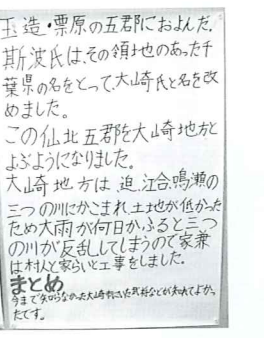 玉造・栗原の五郡におよんだ。
斯波氏は、その領地のあった千
葉県の名をとって、大崎氏と名を改
めました。
この仙北五郡を大崎地方と
よぶようになりました。
大崎地方は、迫、江合、鳴瀬の
三つの川にかこまれ、土地が低かった
ため大雨が何日かふると三つ
の川が反乱してしまうので家兼
は村人と家らいと工事をしました。
まとめ
今まで知らなかった大崎市にいた武将などが知れてよかっ
たです。